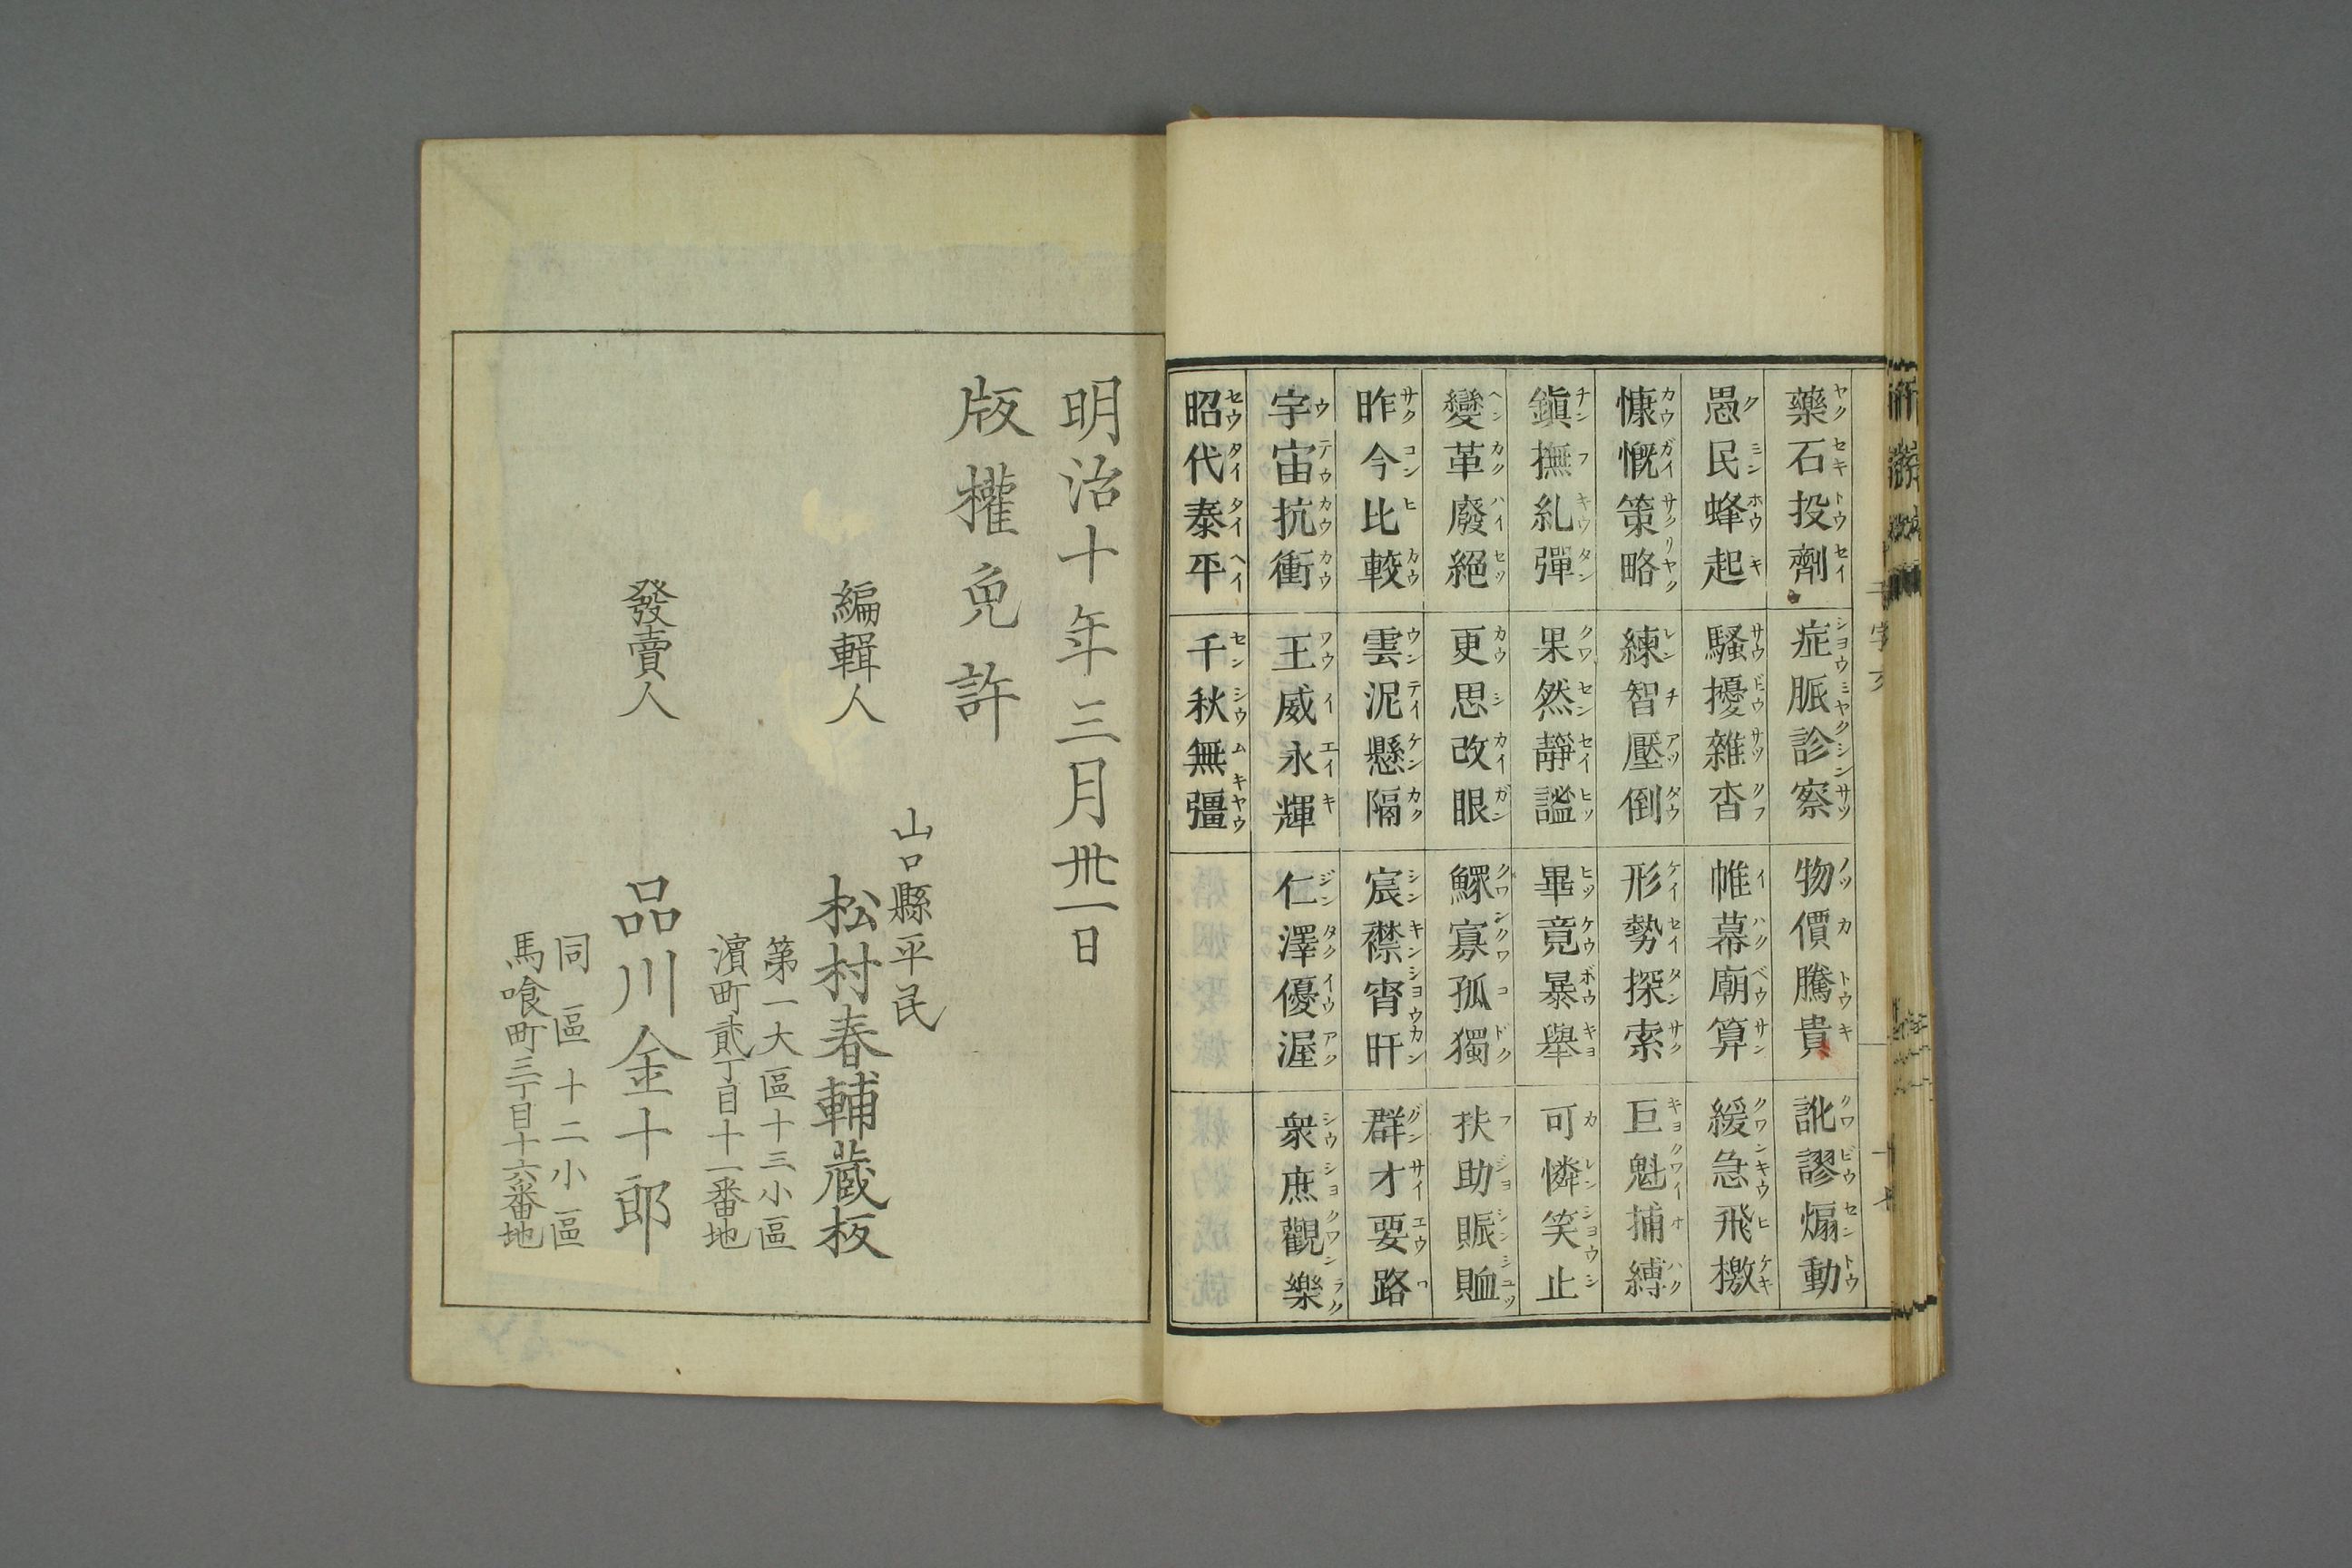 藥石投劑 症脈診察 物價騰貴 訛謬煽動
愚民蜂起 騷擾雜沓 帷幕廟算 緩急飛檄
慷慨策略 練智壓倒 形勢探索 巨魁捕縛
鎭撫糺彈 果然靜謐 畢竟暴舉 可憐笑止
變革廢絕 更思改眼 鰥寡孤獨 扶助賑賉
昨今比較 雲泥懸隔 宸襟宵旰 群才要路
宇宙抗衝 王威永輝 仁澤優渥 衆庶觀樂
昭代泰平 千秋無彊
明治十年三月卅一日
版權免許
山口縣平民
編輯人 松村春輔蔵板
第一大區十三小區
濵町貳丁目十一番地
發賣人 品川金十郎
同區十二小區
馬喰町三丁目十六番地